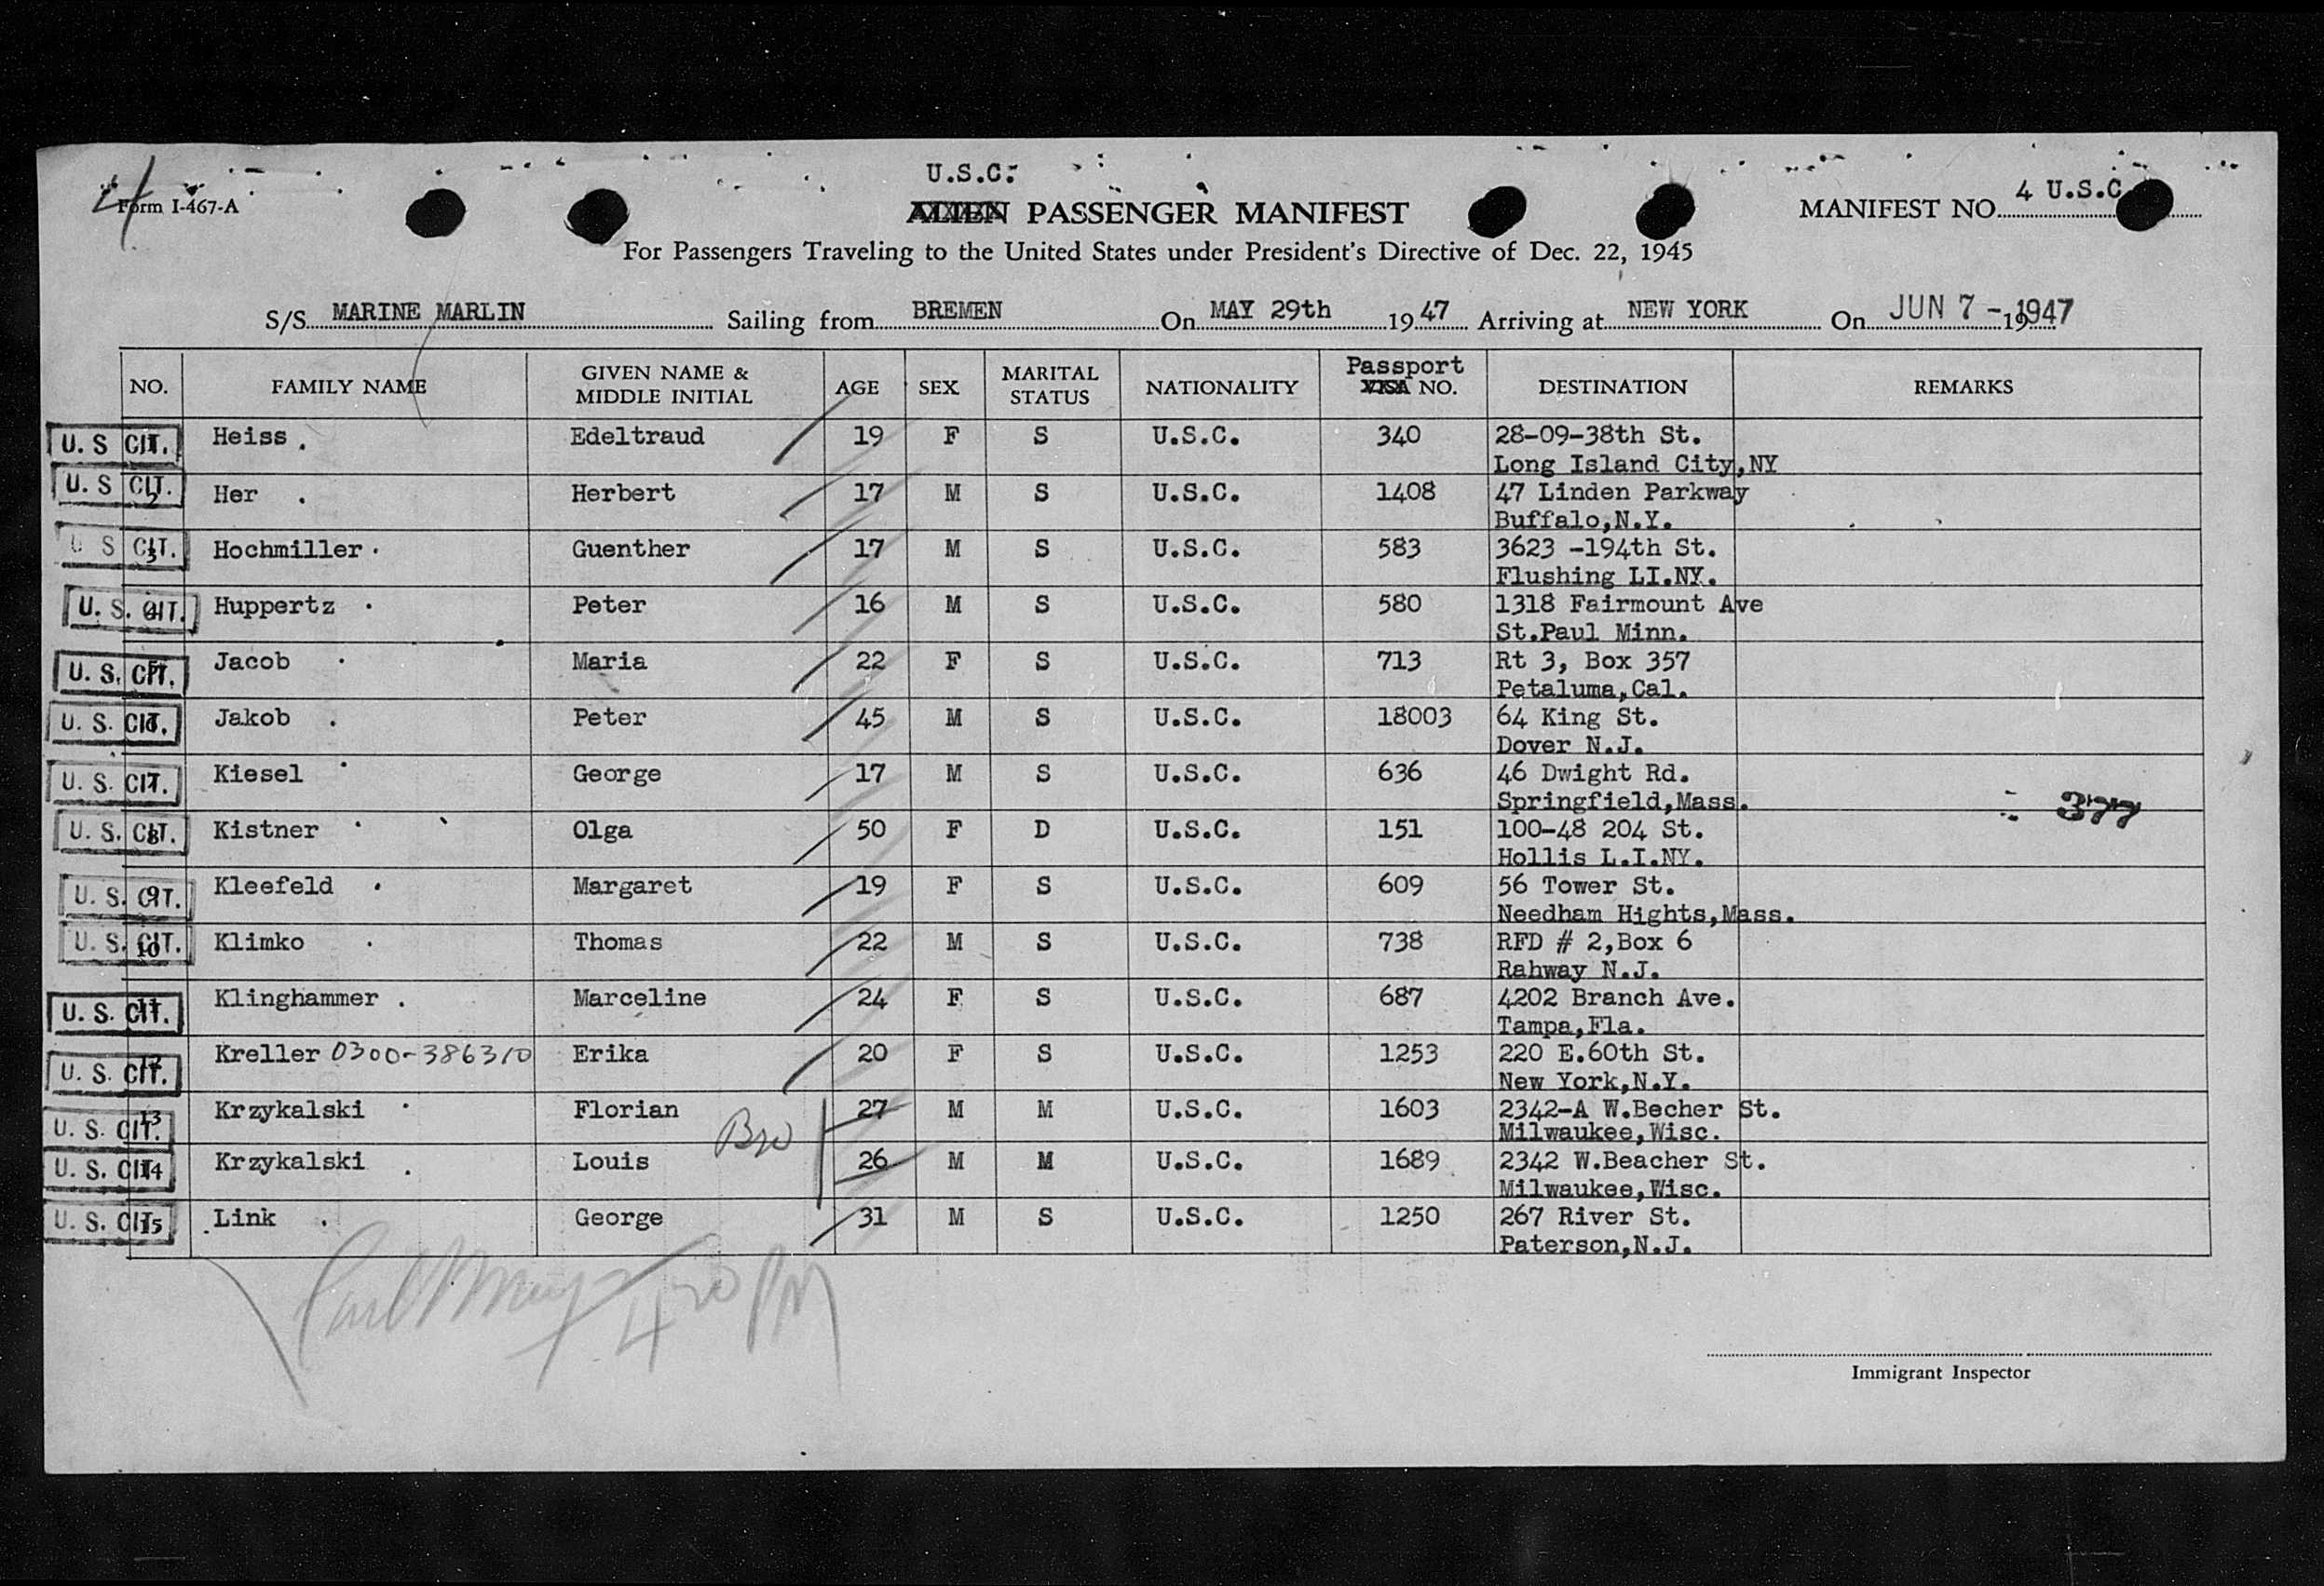 U.S.C.
4
Form I-467-A
ALIEN PASSENGER MANIFEST
MANIFEST NO. 4 U.S.C.
For Passengers Traveling to the United States under President's Directive of Dec. 22, 1945
S/S MARINE MARLIN Sailing from BREMEN On MAY 29th 1947 Arriving at NEW YORK On JUN 7 - 1947
NO. FAMILY NAME GIVEN NAME & MIDDLE INITIAL AGE SEX MARITAL STATUS NATIONALITY Passport VISA NO. DESTINATION REMARKS
U. S CIT. 1 Heiss. Edeltraud 19 F S U.S.C. 340 28-09-38th St.
Long Island City,NY
U. S CIT. 2 Her . Herbert 17 M S U.S.C. 1408 47 Linden Parkway
Buffalo,N.Y.
U S CIT. 3 Hochmiller. Guenther 17 M S U.S.C. 583 3623 -194th St.
Flushing LI.NY.
U. S. CIT. 4 Huppertz . Peter 16 M S U.S.C. 580 1318 Fairmount Ave
St.Paul Minn.
U. S. CIT. 5 Jacob . Maria 22 F S U.S.C. 713 Rt 3, Box 357
Petaluma,Cal.
U. S. CIT. 6 Jakob . Peter 45 M S U.S.C. 18003 64 King St.
Dover N.J.
U. S. CIT. 7 Kiesel . George 17 M S U.S.C. 636 46 Dwight Rd.
Springfield,Mass.
377
U. S. CIT. 8 Kistner . Olga 50 F D U.S.C. 151 100-48 204 St.
Hollis L.I.NY.
U. S. CIT. 9 Kleefeld . Margaret 19 F S U.S.C. 609 56 Tower St.
Needham Hights,Mass.
U. S. CIT. 10 Klimko . Thomas 22 M S U.S.C. 738 RFD # 2,Box 6
Rahway N.J.
U. S. CIT. 11 Klinghammer . Marceline 24 F S U.S.C. 687 4202 Branch Ave.
Tampa,Fla.
U. S. CIT. 12 Kreller 0300-386310 Erika 20 F S U.S.C. 1253 220 E.60th St.
New York,N.Y.
U. S. CIT. 13 Krzykalski . Florian Bro 27 M M U.S.C. 1603 2342-A W.Becher St.
Milwaukee,Wisc.
U. S. CIT. 14 Krzykalski . Louis 26 M M U.S.C. 1689 2342 W.Beacher St.
Milwaukee,Wisc.
U. S. CIT. 15 Link . George 31 M S U.S.C. 1250 267 River St.
Paterson,N.J.
4 20 PM
Immigrant Inspector